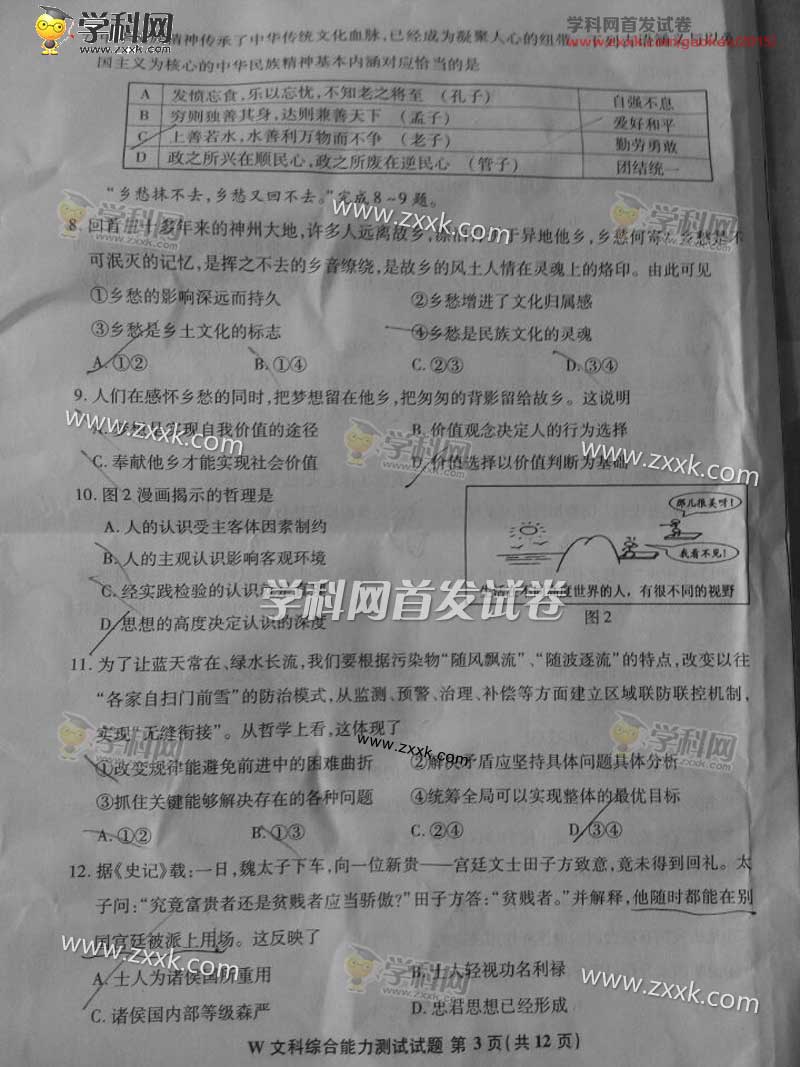 学科网
www.zxxk.com
学科网首发试卷
精神传承了中华传统文化血脉,已经成为凝聚人心的纽带
国主义为核心的中华民族精神基本内涵对应恰当的是
A 发愤忘食,乐以忘忧,不知老之将至 (孔子) 自强不息
B 穷则独善其身,达则兼善天下 (孟子) 爱好和平
C 上善若水,水善利万物而不争 (老子) 勤劳勇敢
D 政之所兴在顺民心,政之所废在逆民心 (管子) 团结统一
“乡愁抹不去,乡愁又回不去。”完成8~9题。
www.zxxk.com
8. 回首 十多年来的神州大地,许多人远离故乡, 于异地他乡,乡愁何寄?乡愁是不
可泯灭的记忆,是挥之不去的乡音缭绕,是故乡的风土人情在灵魂上的烙印。由此可见
①乡愁的影响深远而持久 ②乡愁增进了文化归属感
③乡愁是乡土文化的标志 ④乡愁是民族文化的灵魂
A. ①② B. ①④ C. ②③ D. ③④
9. 人们在感怀乡愁的同时,把梦想留在他乡,把匆匆的背影留给故乡。这说明
A. 乡愁是实现自我价值的途径 B. 价值观念决定人的行为选择
C. 奉献他乡才能实现社会价值 D. 价值选择以价值判断为基础
www.zxxk.com
学科网
www.zxxk.com
10. 图2漫画揭示的哲理是
A. 人的认识受主客体因素制约
B. 人的主观认识影响客观环境
C. 经实践检验的认识
D. 思想的高度决定认识的深度
那儿很美呀!
我看不见!
度世界的人,有很不同的视野
图2
学科网首发试卷
11. 为了让蓝天常在、绿水长流,我们要根据污染物“随风飘流”、“随波逐流”的特点,改变以往
“各家自扫门前雪”的防治模式,从监测、预警、治理、补偿等方面建立区域联防联控机制,
实现“无缝衔接”。从哲学上看,这体现了
学科网
www.zxxk.com
学科网
①改变规律能避免前进中的困难曲折 ②解决矛盾应坚持具体问题具体分析
③抓住关键能够解决存在的各种问题 ④统筹全局可以实现整体的最优目标
A. ①② B. ①③ C. ②④ D. ③④
12. 据《史记》载:一日,魏太子下车,向一位新贵——宫廷文士田子方致意,竟未得到回礼。太
子问:“究竟富贵者还是贫贱者应当骄傲?”田子方答:“贫贱者。”并解释,他随时都能在别
国宫廷被派上用场。这反映了
www.zxxk.com
学科网
www.zxxk.com
A. 士人为诸侯国所重用 B. 士人轻视功名利禄
C. 诸侯国内部等级森严 D. 忠君思想已经形成
W 文科综合能力测试试题 第 3 页(共 12 页)